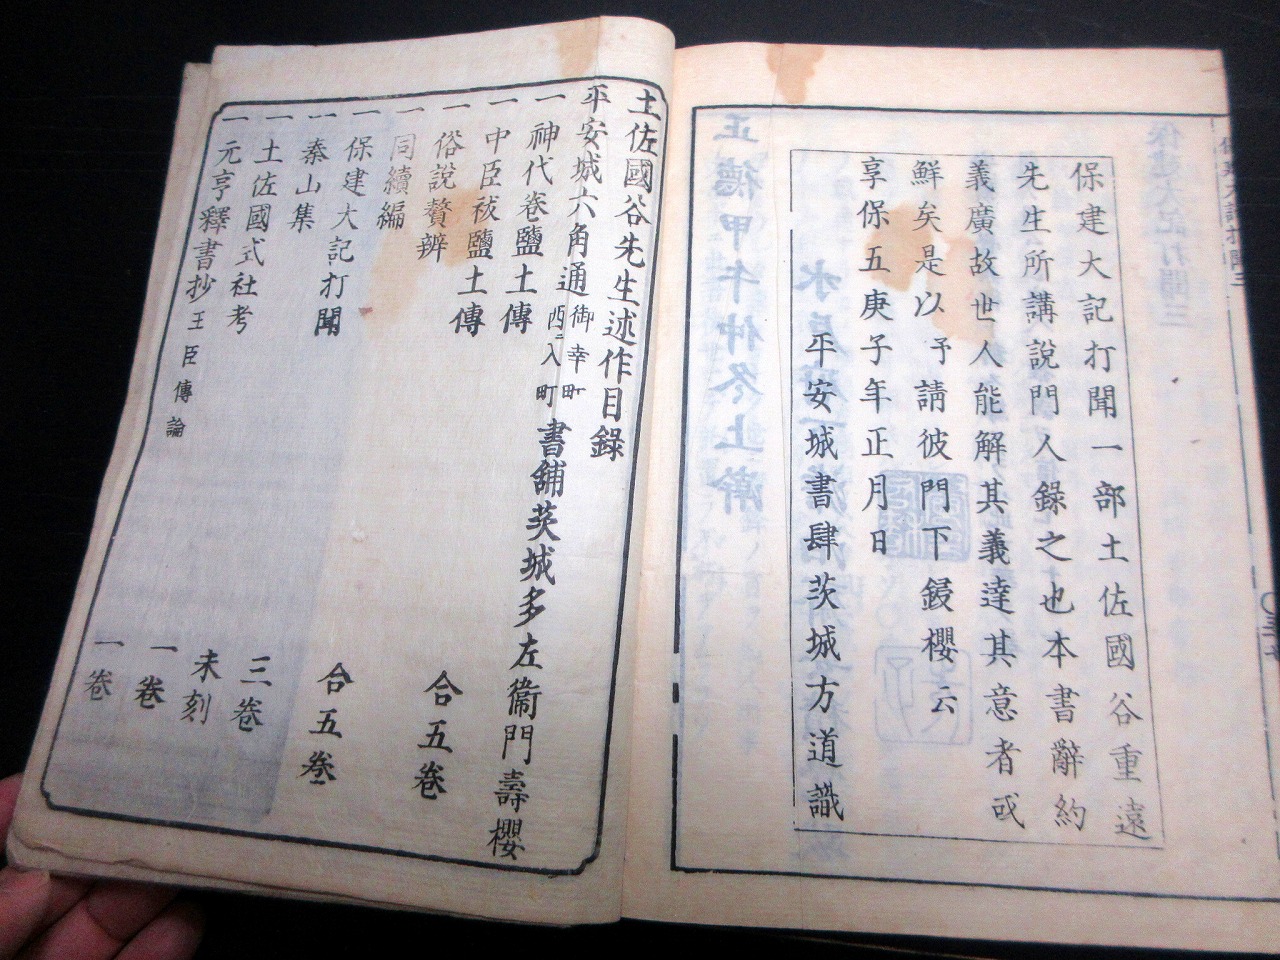 保建大記打聞一部土佐國谷重遠
先生所講說門人錄之也本書辭約
義廣故世人能解其義達其意者或
鮮矣是以予請彼門下鋟櫻云
享保五庚子年正月日
平安城書肆茨城方道識
土佐國谷先生述作目錄
平安城六角通御幸町西ニ入町書舖茨城多左衞門壽櫻
一神代卷鹽土傳
一中臣祓鹽土傳 合五卷
一俗說贅辨
一同續編 合五卷
一保建大記打聞 三卷
一秦山集 未刻
一土佐國式社考 一卷
一元亨釋書抄王臣傳論 一卷